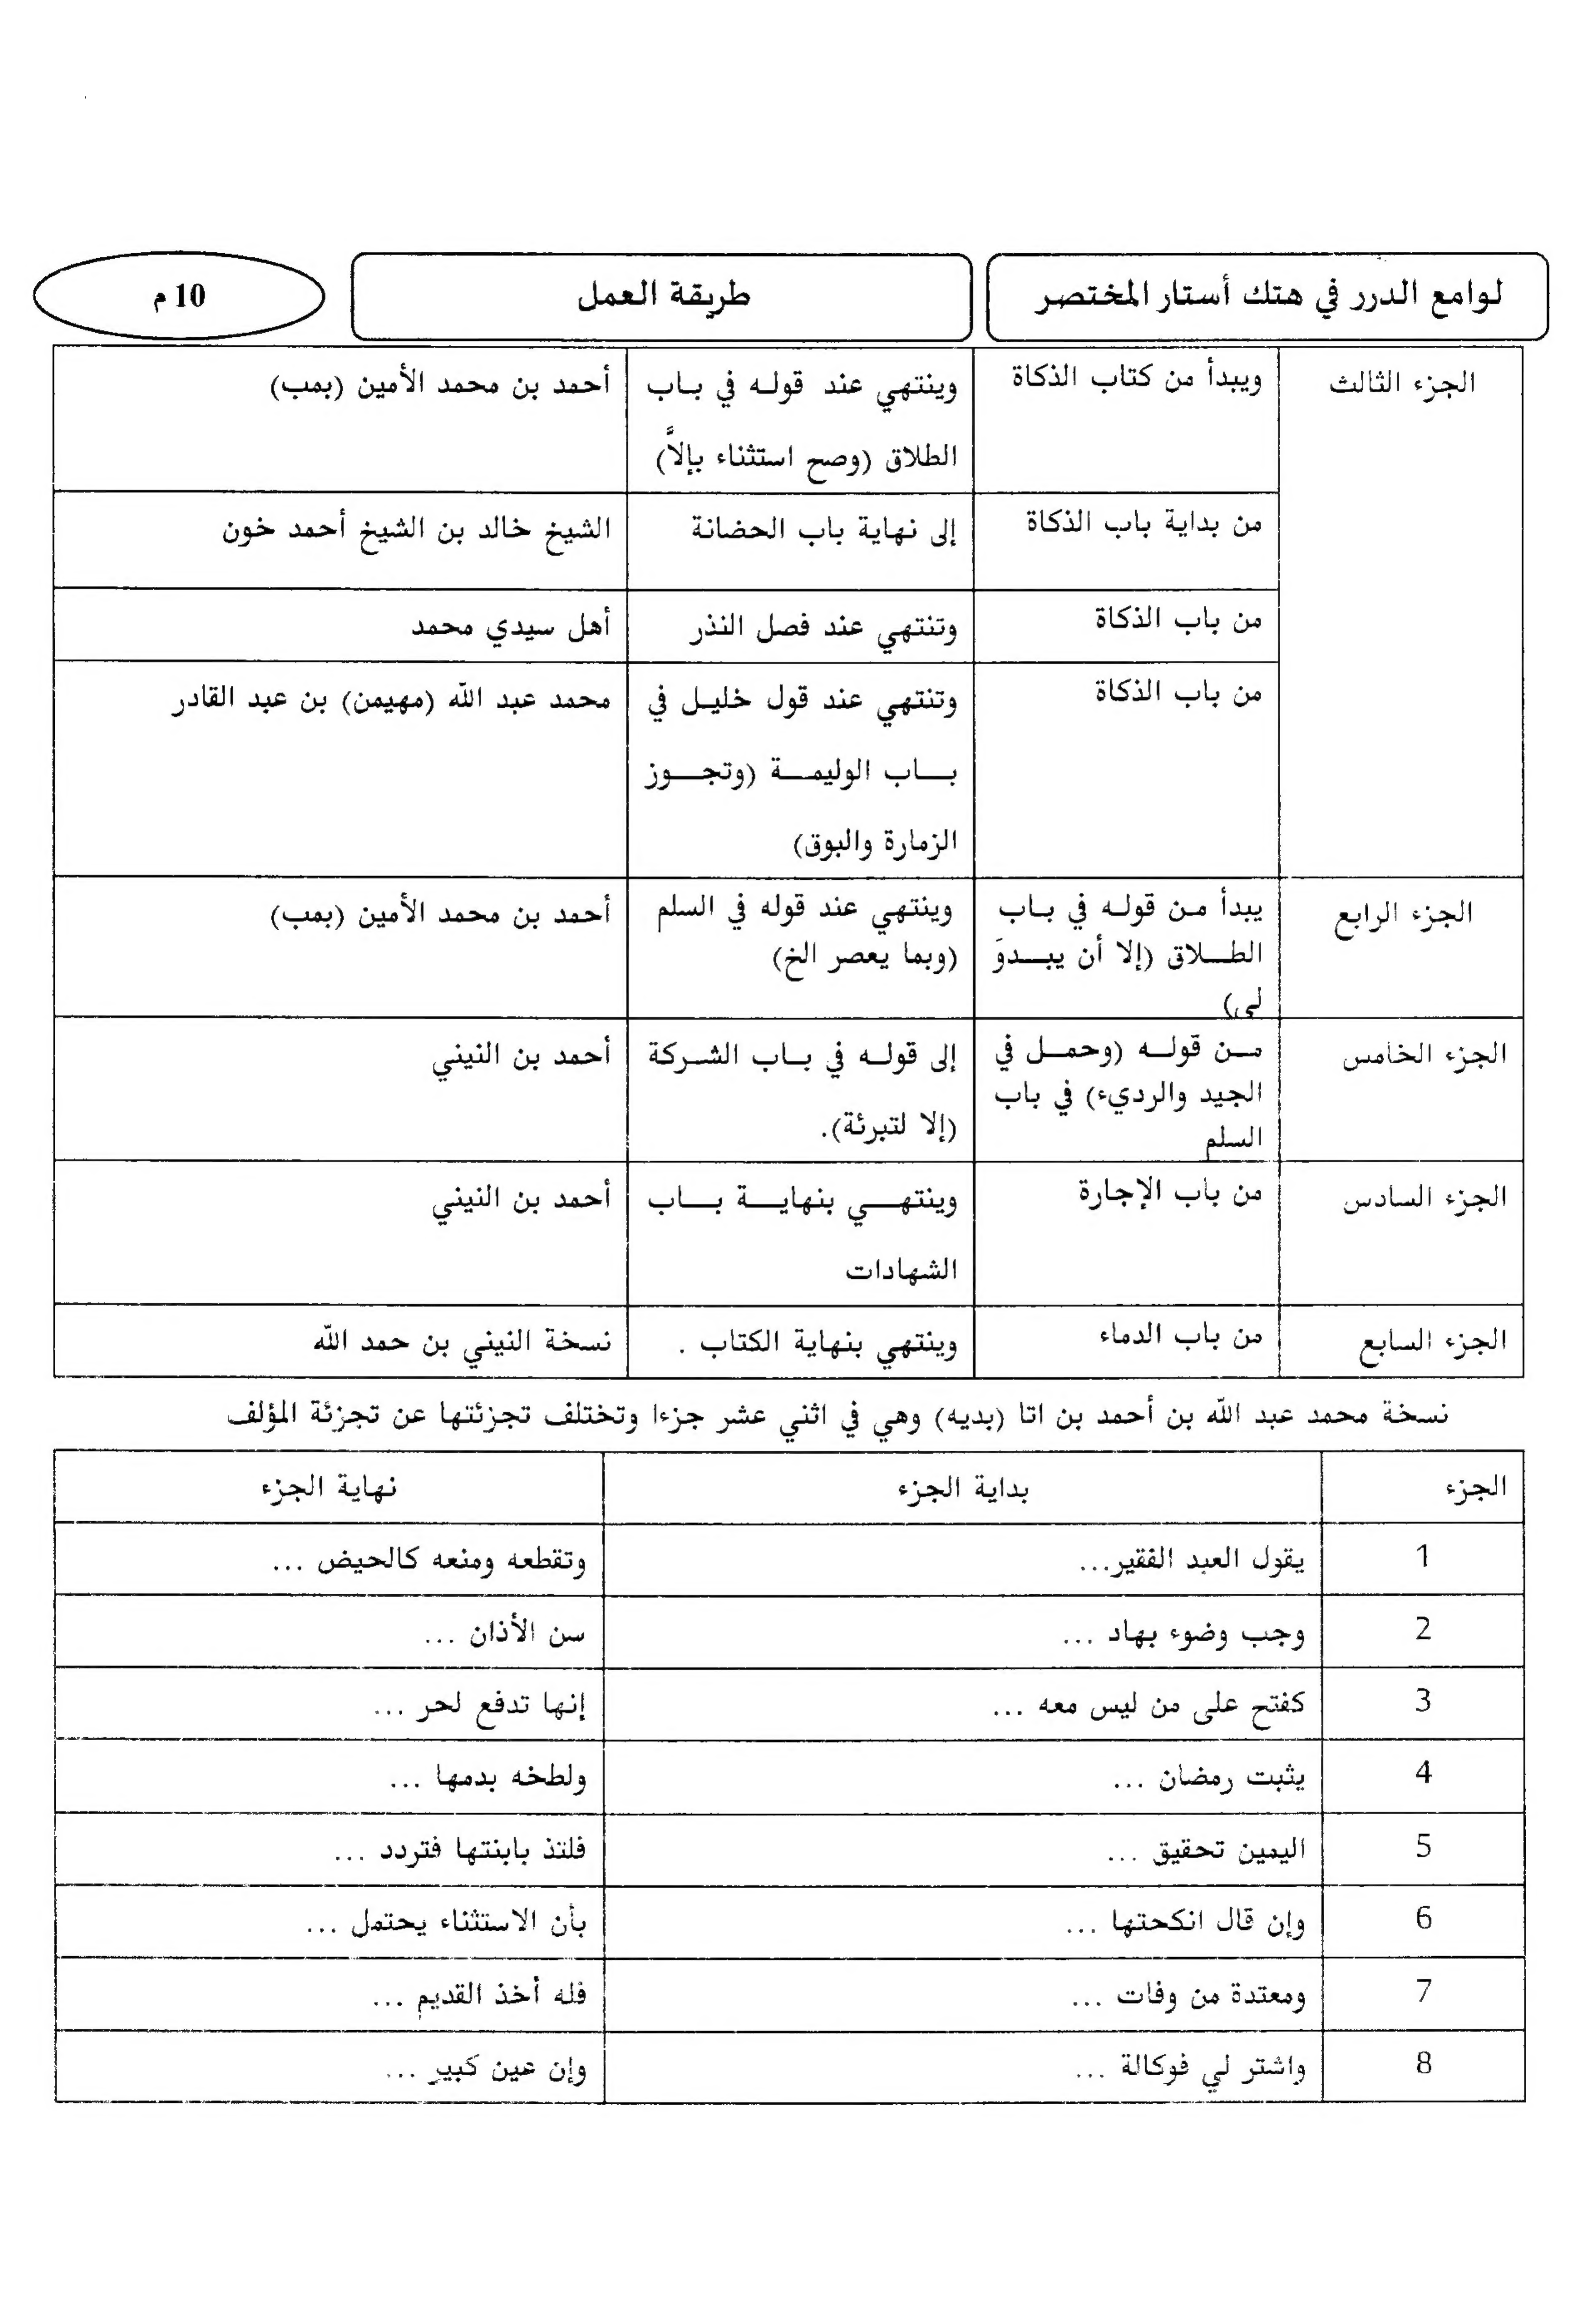 لوامع الدرر في هتك أستار المختصر
طريقة العمل
10 م
الجزء الثالث
ويبدأ من كتاب الذكاة
وينتهي عند قوله في باب
الطلاق (وصح استثناء بإلاَّ)
أحمد بن محمد الأمين (بمب)
من بداية باب الذكاة
إلى نهاية باب الحضانة
الشيخ خالد بن الشيخ أحمد خون
من باب الذكاة
وتنتهي عند فصل النذر
أهل سيدي محمد
من باب الذكاة
وتنتهي عند قول خليل في
باب الوليمة (وتجوز
الزمارة والبوق)
محمد عبد الله (مهيمن) بن عبد القادر
الجزء الرابع
يبدأ من قوله في باب
الطلاق (إلا أن يبدوَ
لي)
وينتهي عند قوله في السلم
(وبما يعصر الخ)
أحمد بن محمد الأمين (بمب)
الجزء الخامس
من قوله (وحمل في
الجيد والرديء) في باب
السلم
إلى قوله في باب الشركة
(إلا لتبرئة).
أحمد بن النيني
الجزء السادس
من باب الإجارة
وينتهي بنهاية باب
الشهادات
أحمد بن النيني
الجزء السابع
من باب الدماء
وينتهي بنهاية الكتاب .
نسخة النيني بن حمد الله
نسخة محمد عبد الله بن أحمد بن اتا (بديه) وهي في اثني عشر جزءا وتختلف تجزئتها عن تجزئة المؤلف
الجزء
بداية الجزء
نهاية الجزء
1
يقول العبد الفقير...
وتقطعه ومنعه كالحيض ...
2
وجب وضوء بهاد ...
سن الأذان ...
3
كفتح على من ليس معه ...
إنها تدفع لحر ...
4
يثبت رمضان ...
ولطخه بدمها ...
5
اليمين تحقيق ...
فلتذ بابنتها فتردد ...
6
وإن قال انكحتها ...
بأن الاستثناء يحتمل ...
7
ومعتدة من وفات ...
فله أخذ القديم ...
8
واشتر لي فوكالة ...
وإن عين كبير ...